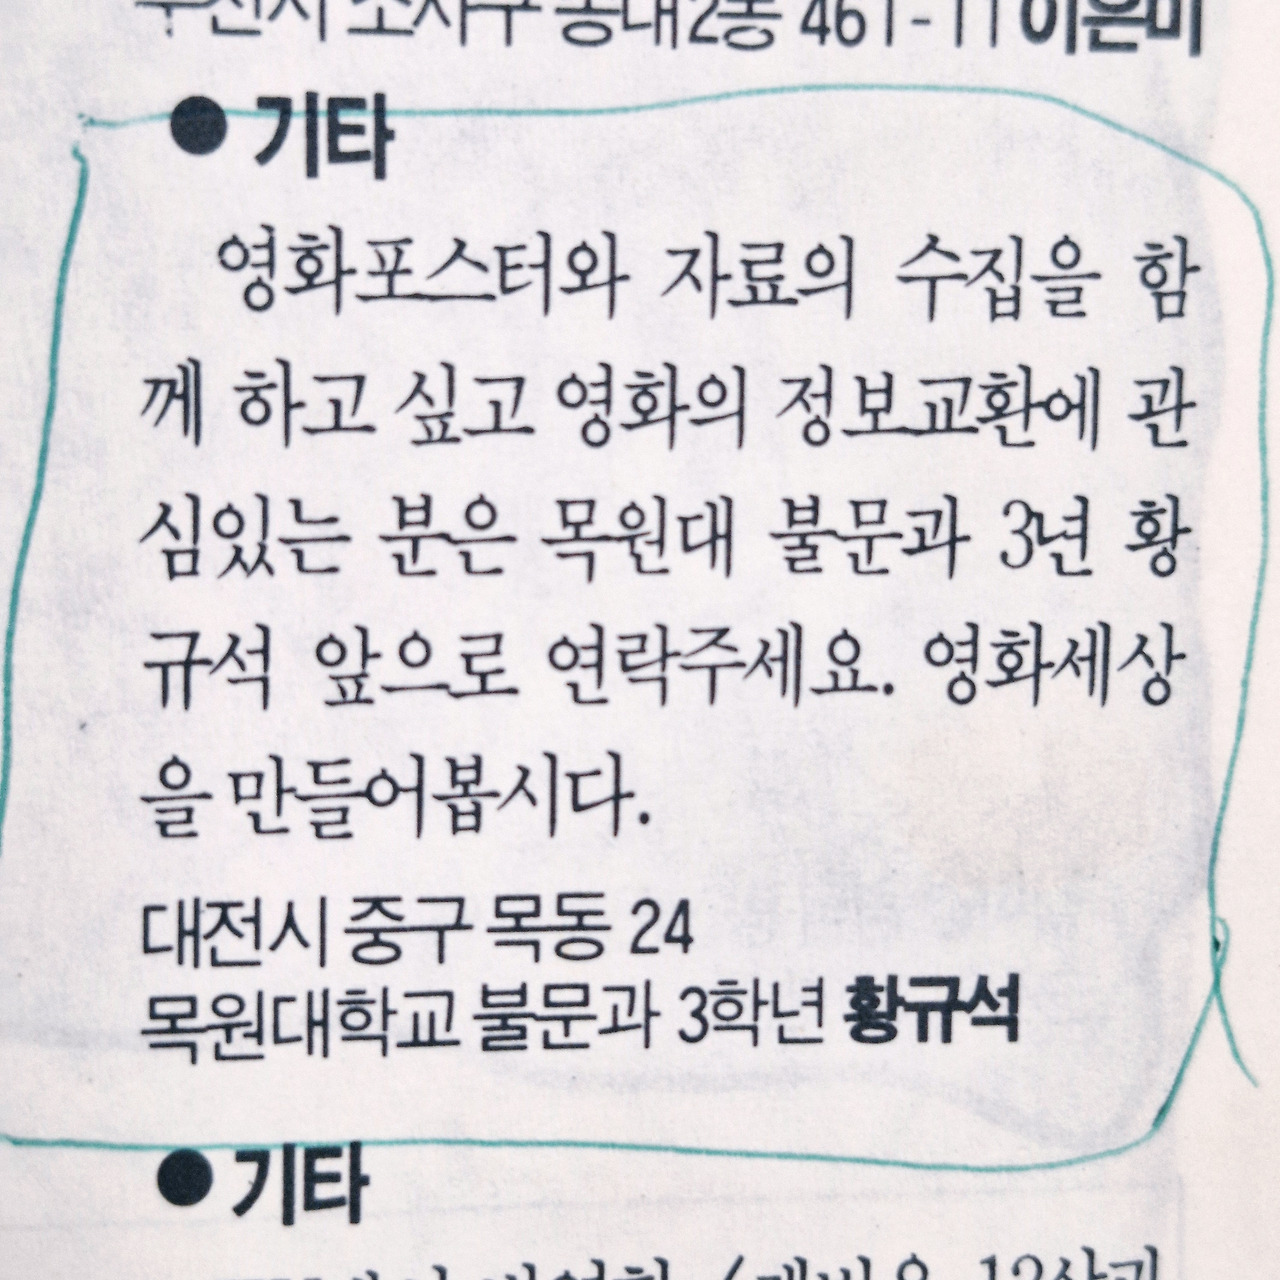 부천시 소사구 송내2동 461-11 이은미
● 기타
영화포스터와 자료의 수집을 함
께 하고 싶고 영화의 정보교환에 관
심있는 분은 목원대 불문과 3년 황
규석 앞으로 연락주세요. 영화세상
을 만들어봅시다.
대전시 중구 목동 24
목원대학교 불문과 3학년 황규석
● 기타